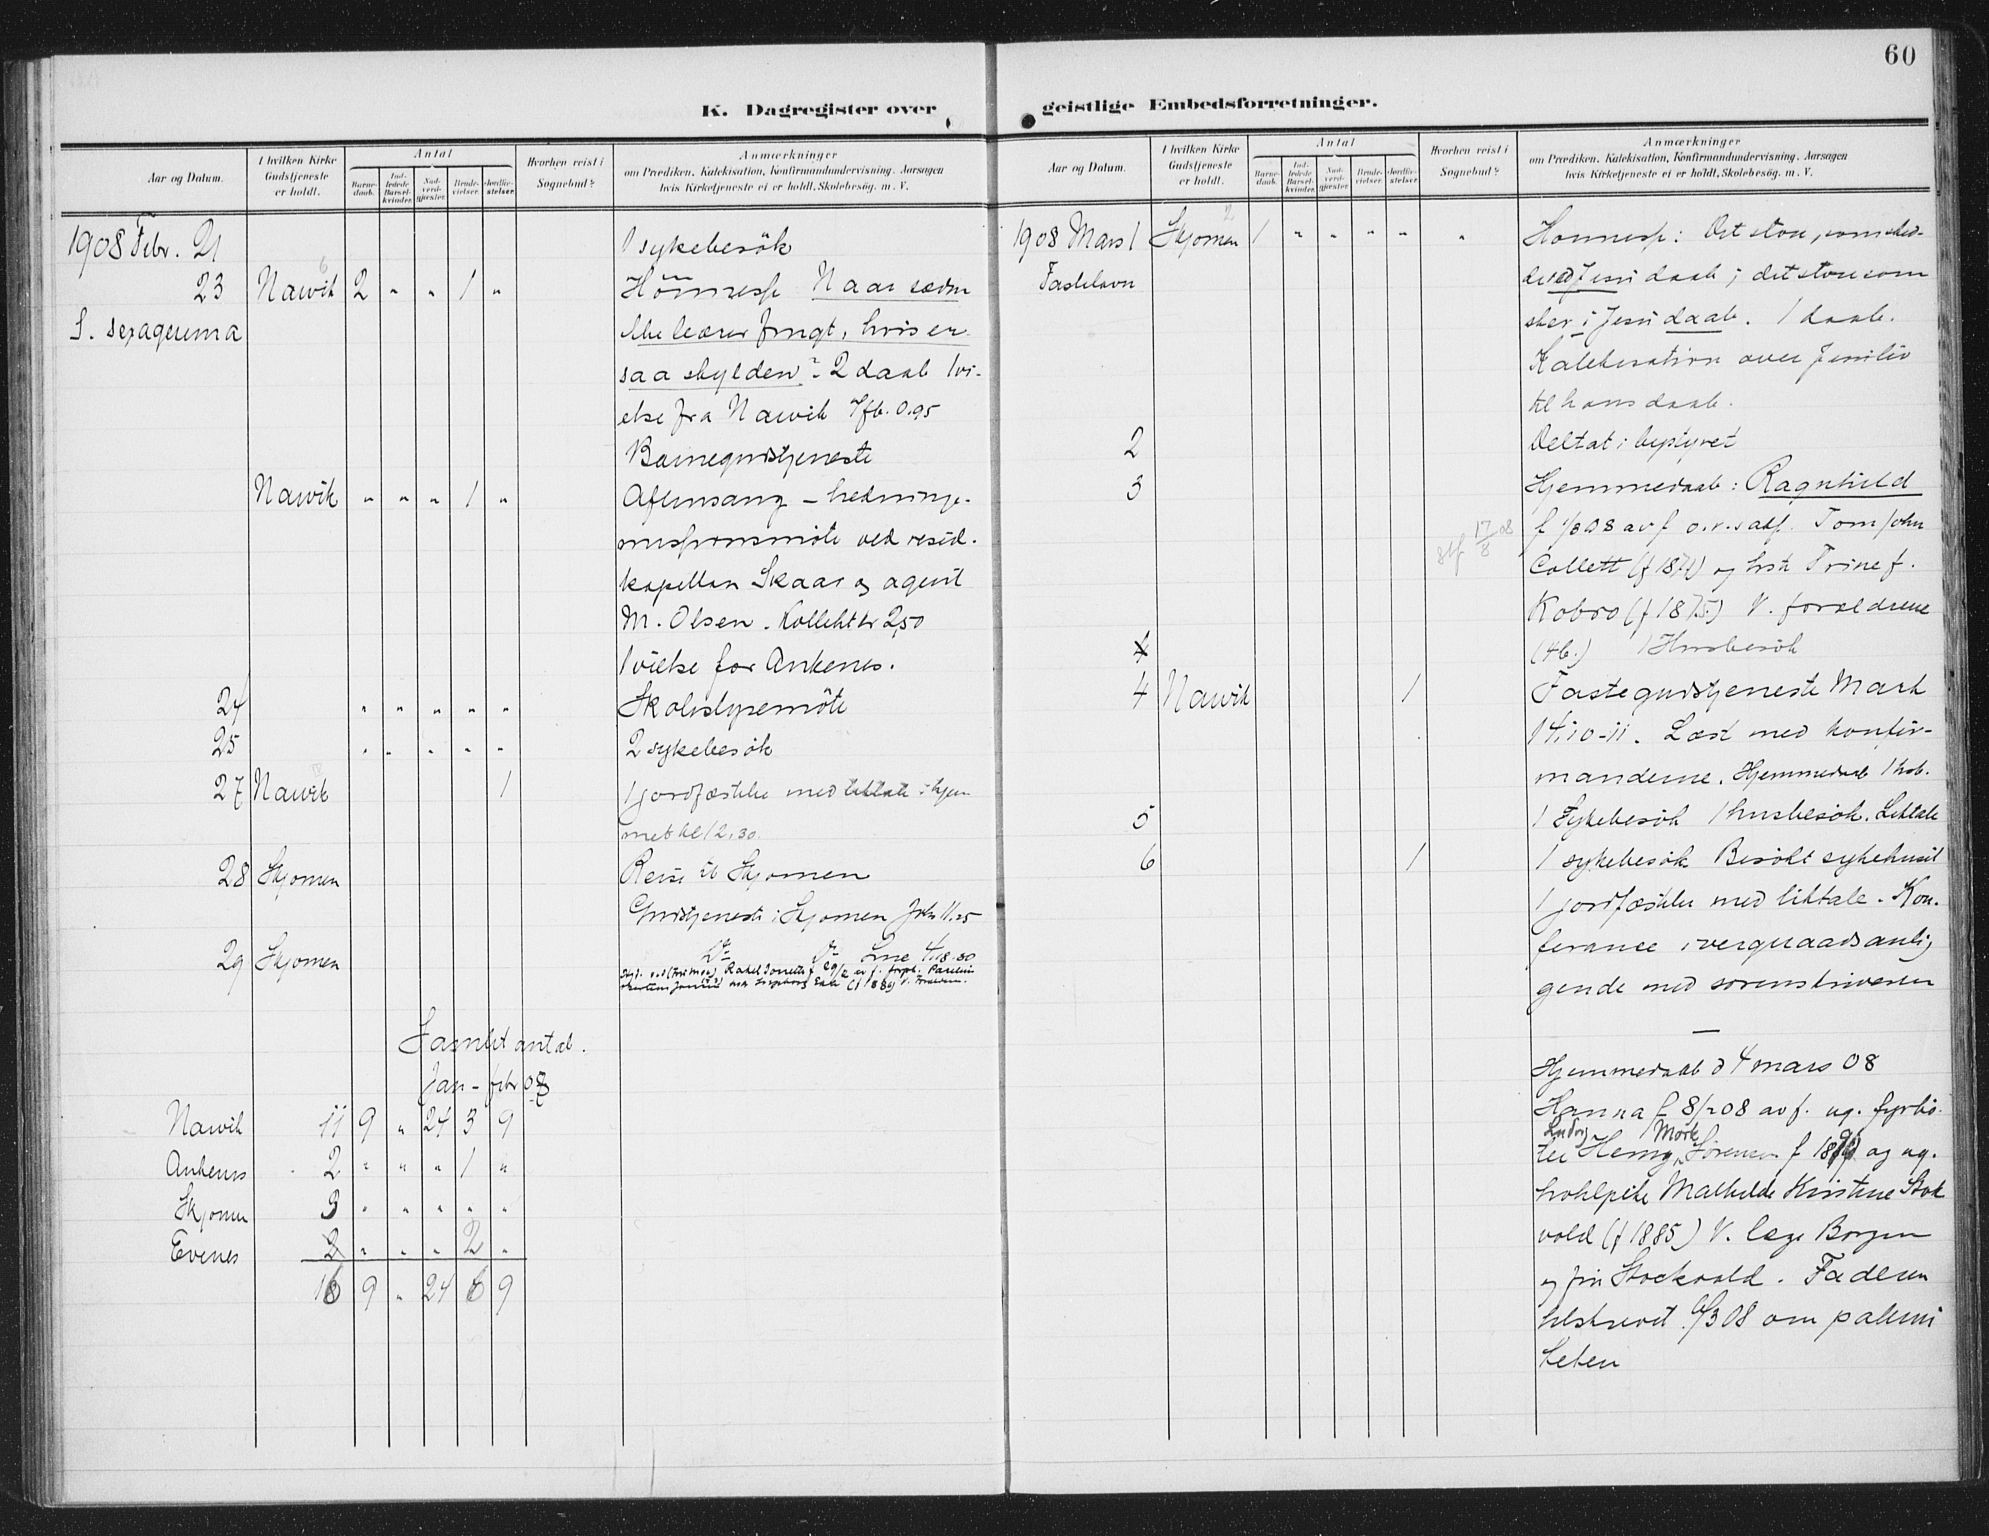 60
K. Dagregister over
geistlige Embedsforretninger.
Aar og Datum.
I hvilken Kirke Gudstjeneste er holdt.
Antal
Barne-daab.
Ind-ledede Barsel-kvinder.
Nad-verd-gjæster.
Brude-vielser.
Jordfæ-stelser.
Hvorhen reist i Sognebud?
Anmærkninger
om Prædiken, Katekisation, Konfirmandundervisning. Aarsagen
hvis Kirketjeneste ei er holdt, Skolebesøg. m. V.
1908 Febr. 21 1 sykebesök
23 Narvik 2 " " 1 " Höimesse Naar sæden
S. sexagesima ikke bærer frugt, hvis er
saa skylden? 2 daab 1 vi-
else fra Narvik Kfb. 0.95
Barnegudstjeneste
Narvik " " " 1 " Aftensang – hedninge-
missionsmöte ved resid.
kapellan Skaar og agent
M. Olsen. Kollekt kr 2,50
1 vielse for Ankenes.
24 " " " " " Skolestyremöte
25 " " " " " 2 sykebesök
27 Narvik 1 1 jordfæstelse med liktale i hjem
met kl 12,30.
28 Skjomen Reise til Skjomen
Gudstjeneste i Skjomen
29 Skjomen
Samlet antal.
Jan – febr 08
Narvik 11 9 " 24 3 9
Ankenes 2 " " " 1 "
Skjomen 3 " " " " "
Evenes 2 " " " 2 "
9 " 24 6 9
Aar og Datum.
I hvilken Kirke Gudstjeneste er holdt.
Antal
Barne-daab.
Ind-ledede Barsel-kvinder.
Nad-verd-gjæster.
Brude-vielser.
Jordfæ-stelser.
Hvorhen reist i Sognebud?
Anmærkninger
om Prædiken, Katekisation, Konfirmandundervisning. Aarsagen
hvis Kirketjeneste ei er holdt, Skolebesøg. m. V.
1908 Mars 1 Skjomen 1 " " " " " Det store, som sked-
Fastelavn de ved Jesu daab; det store som
sker i Jesu daab. 1 daab.
over
til hans daab.
2 Deltat i
3 Hjemmedaab: Ragnhild
17/8 08
Tom John
Collett og hst Trine f.
Kobro (f 1875) V. forældrene
4 1 Husbesök
4 Narvik 1 Fastegudstjeneste Mark
14, 10-11. Læst med konfir-
manderne. Hjemmedaab 1 hsb.
5 1 Sykebesök 1 husbesök. Liktale
6 1 1 sykebesök Besökt sykehuset
1 jordfæstelse med liktale. Kon-
ferance i vergeraadsanlig
gende med sorenskriveren
—
Hjemmedaab d 4 mars 08
Hanna f 8/2 08 av f. ug. fyrbö-
Ludvig Mork
ter Henry Sörensen f og ug.
Mathilde Kirstine Stok
vold (f 1885) V. læge Borgen
og frk Stockvold. Faderen
tilskrevet 6/3 08 om paterni
teten